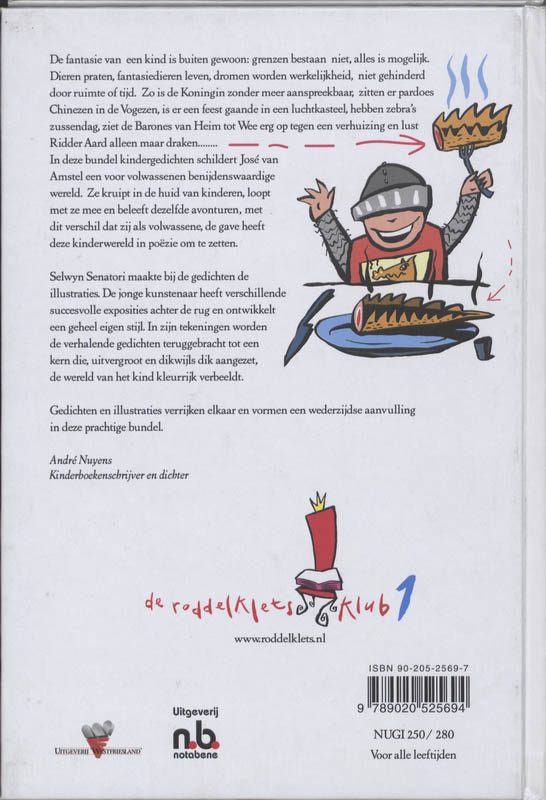 De fantasie van een kind is buiten gewoon: grenzen bestaan niet, alles is mogelijk.
Dieren praten, fantasiedieren leven, dromen worden werkelijkheid, niet gehinderd
door ruimte of tijd. Zo is de Koningin zonder meer aanspreekbaar, zitten er pardoes
Chinezen in de Vogezen, is er een feest gaande in een luchtkasteel, hebben zebra's
zussendag, ziet de Barones van Heim tot Wee erg op tegen een verhuizing en lust
Ridder Aard alleen maar draken........
In deze bundel kindergedichten schildert José van
Amstel een voor volwassenen benijdenswaardige
wereld. Ze kruipt in de huid van kinderen, loopt
met ze mee en beleeft dezelfde avonturen, met
dit verschil dat zij als volwassene, de gave heeft
deze kinderwereld in poëzie om te zetten.
Selwyn Senatori maakte bij de gedichten de
illustraties. De jonge kunstenaar heeft verschillende
succesvolle exposities achter de rug en ontwikkelt
een geheel eigen stijl. In zijn tekeningen worden
de verhalende gedichten teruggebracht tot een
kern die, uitvergroot en dikwijls dik aangezet,
de wereld van het kind kleurrijk verbeeldt.
Gedichten en illustraties verrijken elkaar en vormen een wederzijdse aanvulling
in deze prachtige bundel.
André Nuyens
Kinderboekenschrijver en dichter
de roddelklets klub 1
www.roddelklets.nl
ISBN 90-205-2569-7
9 789020 525694
NUGI 250/ 280
Voor alle leeftijden
Uitgeverij
n.b.
notabene
Uitgeverij "Westfriesland"